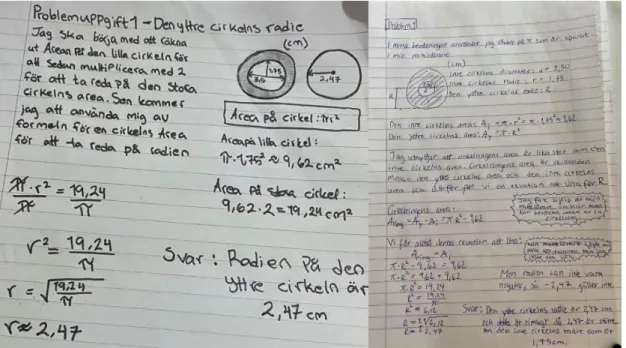 Problemuppgift 1 - Den yttre cirkelns radie
Jag ska börja med att räkna
ut Arean på den lilla cirkeln för
att sedan multiplicera med 2
för att ta reda på den stora
cirkelns area. Sen kommer
jag att använda mig av
formeln för en cirkelns Area
för att ta reda på radien
(cm)
1,75
3,5
2,47
Area på cirkel: πr²
Area på lilla cirkel:
π·1,75² ≈ 9,62 cm²
Area på stora cirkel:
9,62·2=19,24cm²
π·r²/π = 19,24/π
r² = 19,24/π
r = √19,24/π
r≈2,47
Svar: Radien på den
yttre cirkeln är
2,47 cm
Problem 1
I mina beräkningar använder jag
på π som är sparat
i min
(cm)
Inre cirkelns diameter: d = 3,50
Inre cirkelns radie: r = 1,75
Den yttre cirkelns radie: R
Den inre cirkelns area: A₁ = π·r² = π·1,75² ≈ 9,62
Den yttre cirkelns area: A₂ = π·R²
Jag utnyttjar att cirkelringens area är lika stor som den
inre cirkelns area. Cirkelringens area är skillnaden
mellan den yttre cirkelns area och den inre cirkelns
area och därför får vi en ekvation att lösa för R
Cirkelringens area:
A ring = A₂ - A₁ = π·R² - 9,62
Vi får alltså denna ekvation att lösa:
A ring = A₁
π·R² - 9,62 = 9,62
π·R² = 9,62 + 9,62
π·R² = 19,24
R² = 19,24/π
R² = 6,12
R = ±√6,12
R = ± 2,47
Men radien kan inte vara
negativ, så -2,47 gäller inte
Svar: Den yttre cirkelns radie är 2,47 cm
och detta är rimligt då 2,47 är större
än den inre cirkelns radie som är
1,75cm.